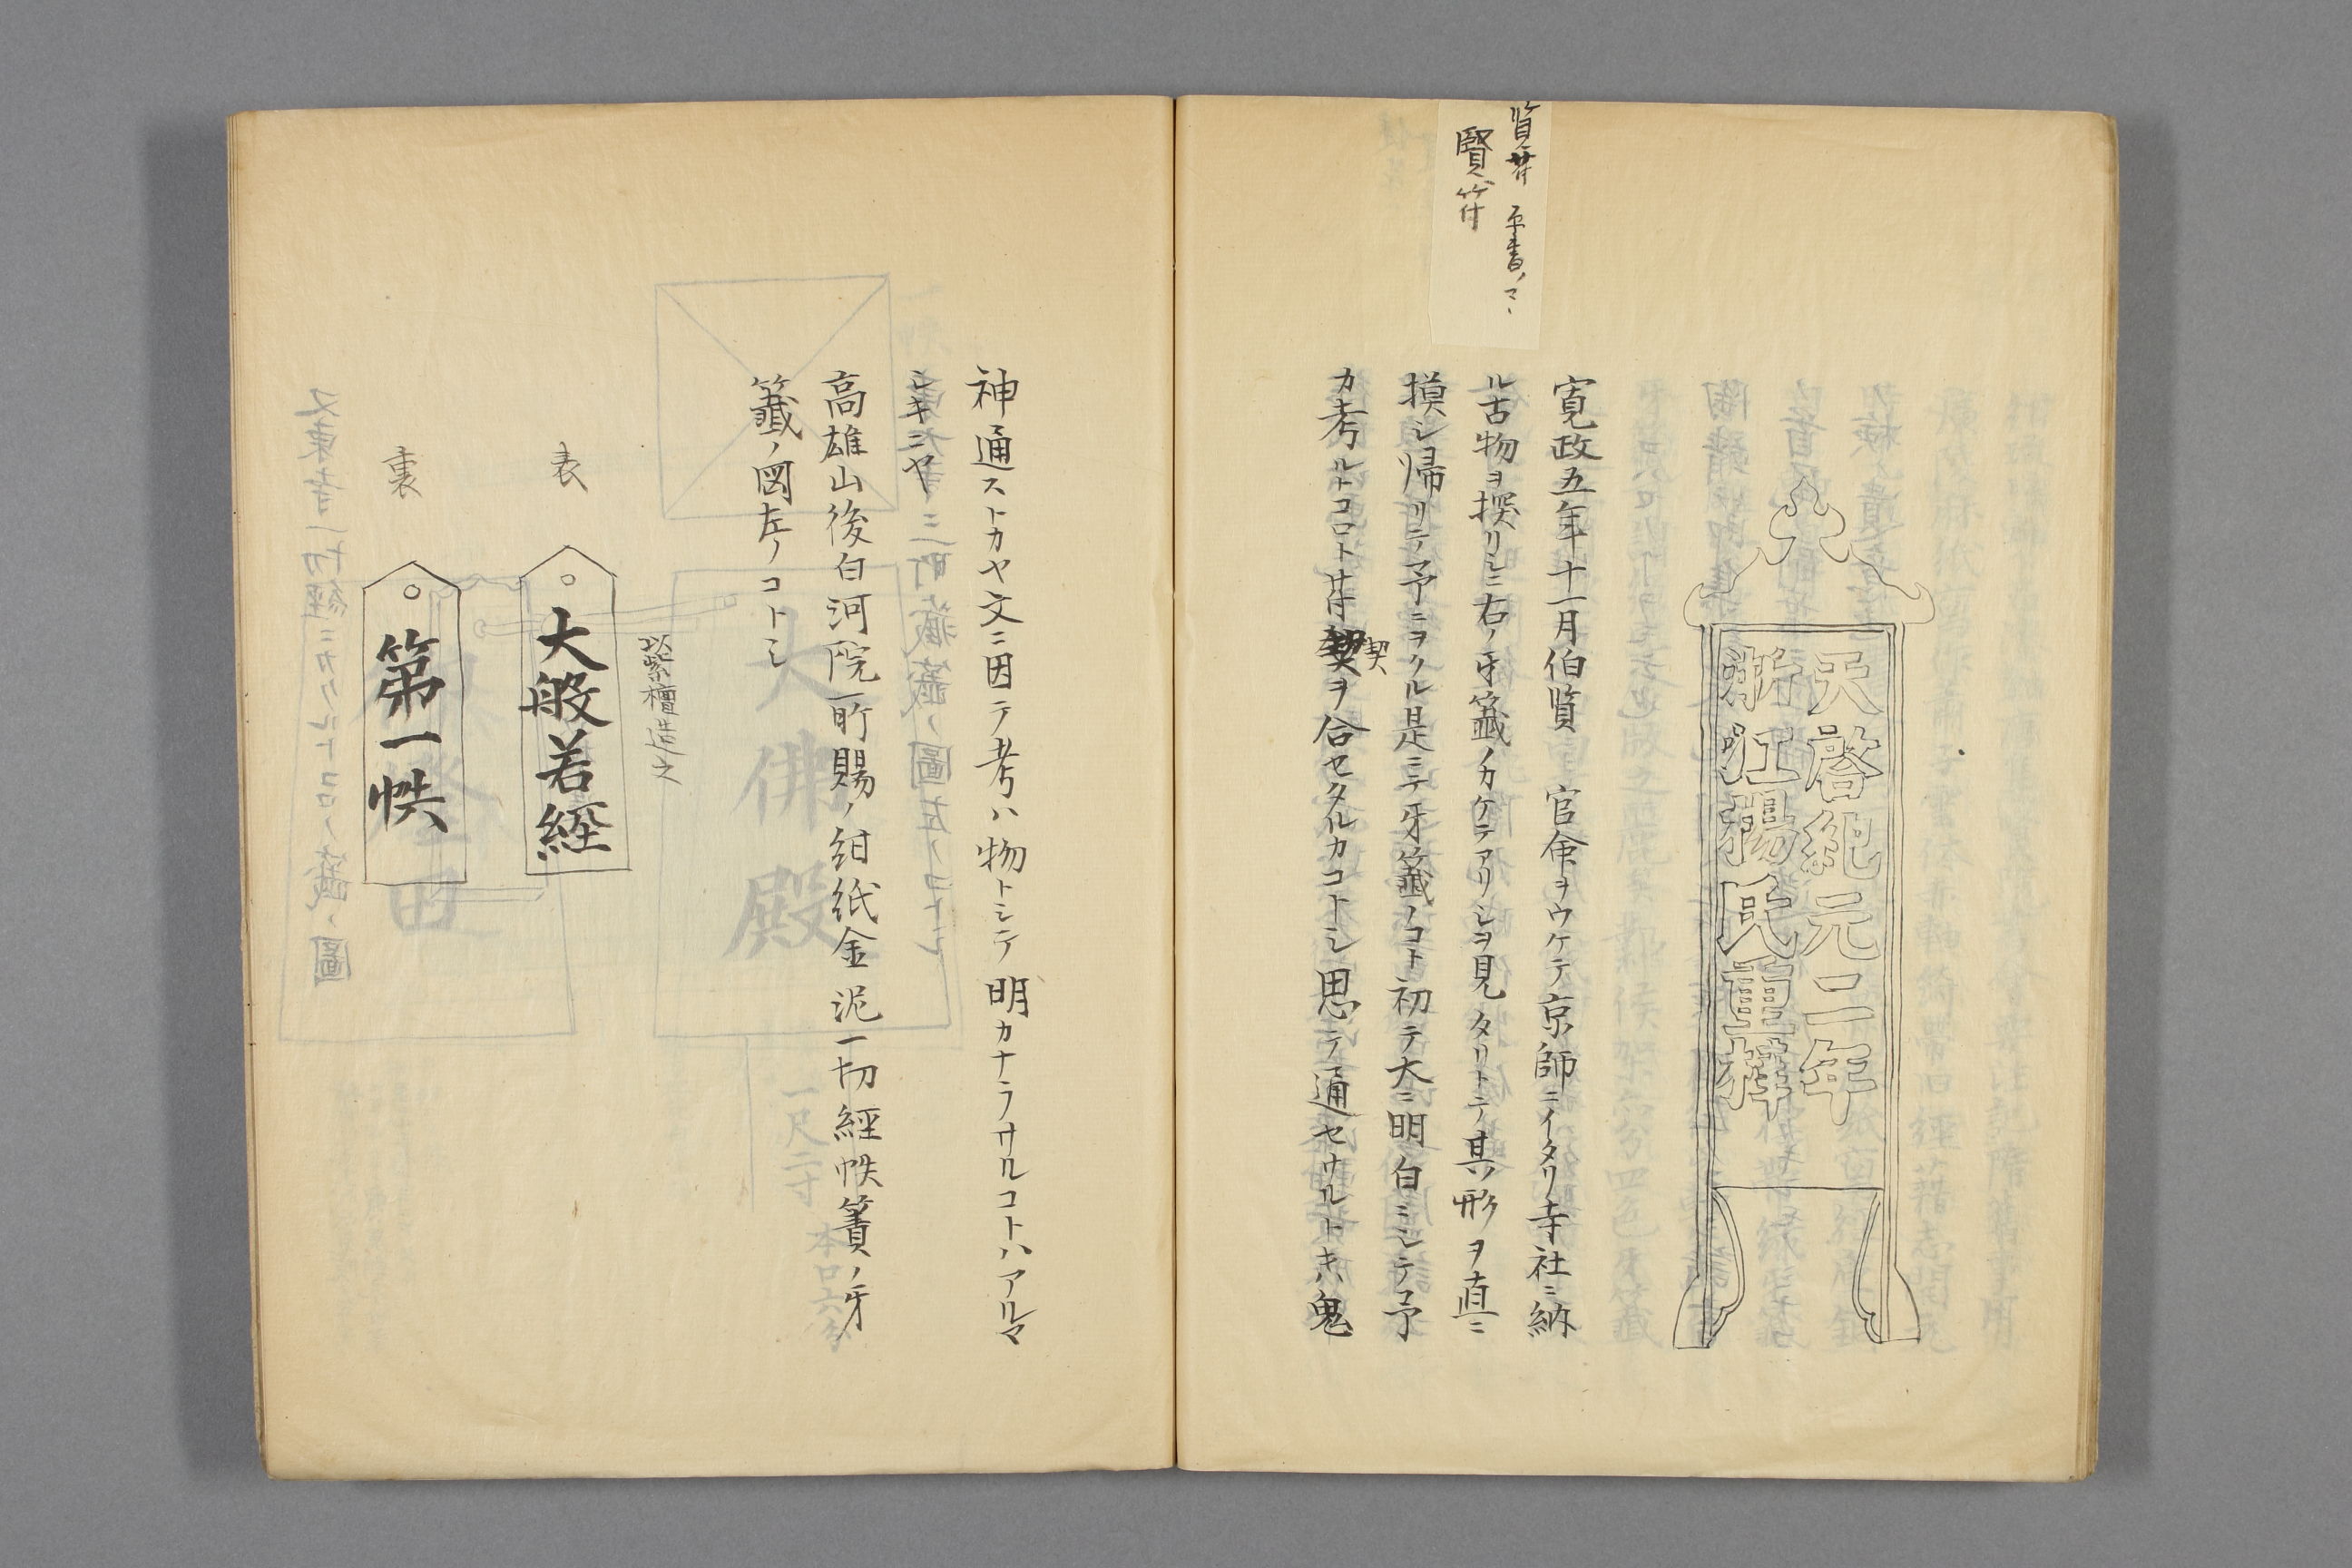 天啓紀元二年
浙江楊氏重梓
寛政五年十一月伯賢ニ官命ヲウケテ京師ニイタリ寺社ニ納
ル古物ヲ探リシニ右ノ牙籤ノカケテアリシヲ見タリトテ其形ヲ直ニ
摸シ帰リテ予ニヲクル是ニテ牙籤ノコト初テ大ニ明白ミシテ予
カ考ルトコロト苻契ヲ合セタルカコトシ思テ通セサルトキハ鬼
契
賢苻 原書ノマヽ
賢符
神通ストカヤ文ニ因テ考ハ物トシテ明カナラサルコトハアルマ
シキニヤ
高雄山後白河院所賜ノ紺紙金泥一切経帙簀ノ牙
籤ノ図左ノコトシ
以紫檀造之
表
大般若経
裏
第一帙